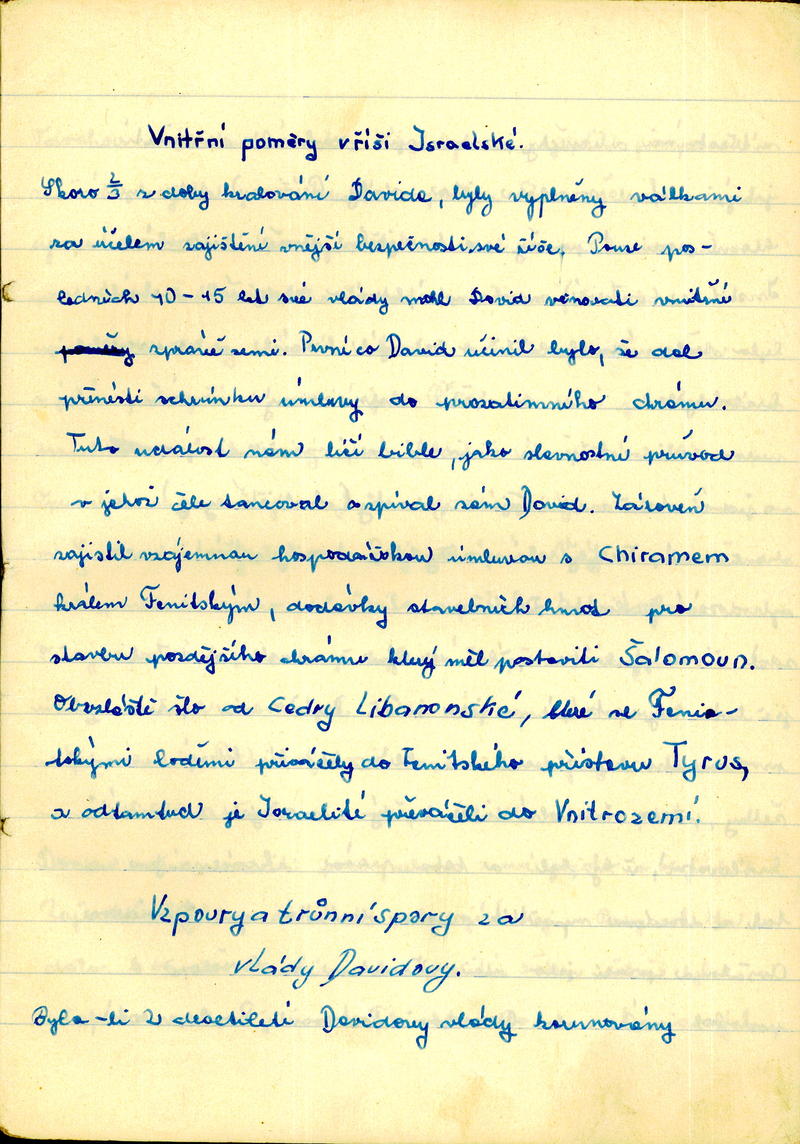 Vnitřní poměry v říši Israelské.
Skoro 2/3 z doby kralování Davida, byly vyplněny válkami
za účelem zajištění vnější bezpečnosti své říše. Pouze pos-
ledních 10-15 let své vlády mohl David věnovati vnitřní
poměry zprávě zemi. První co David učinil bylo, že dal
přenésti schránku úmluvy do prozatimného chrámu.
Tuto událost nám líčí bible, jako slavnostné průvod
v jehož čele tancoval a zpíval sám David. Zároveň
zajistil vzájemnou hospodářskou úmluvou s Chiramem
králem Fenitským, dodávky stavebních hmot pro
stavbu pozdějšího chrámu který měl postaviti Šalomoun.
Obzvláště šlo od Cedry Libanonské, které se Fenic-
tskými loděmi přivážely do Fenitského přístavu Tyrus,
a odtamtud je Israelité převáželi do Vnitrozemí.
Vzpoury a trůnní spory za
vlády Davidovy.
Byla-li 2 desetiletí Davidovy vlády korunovány